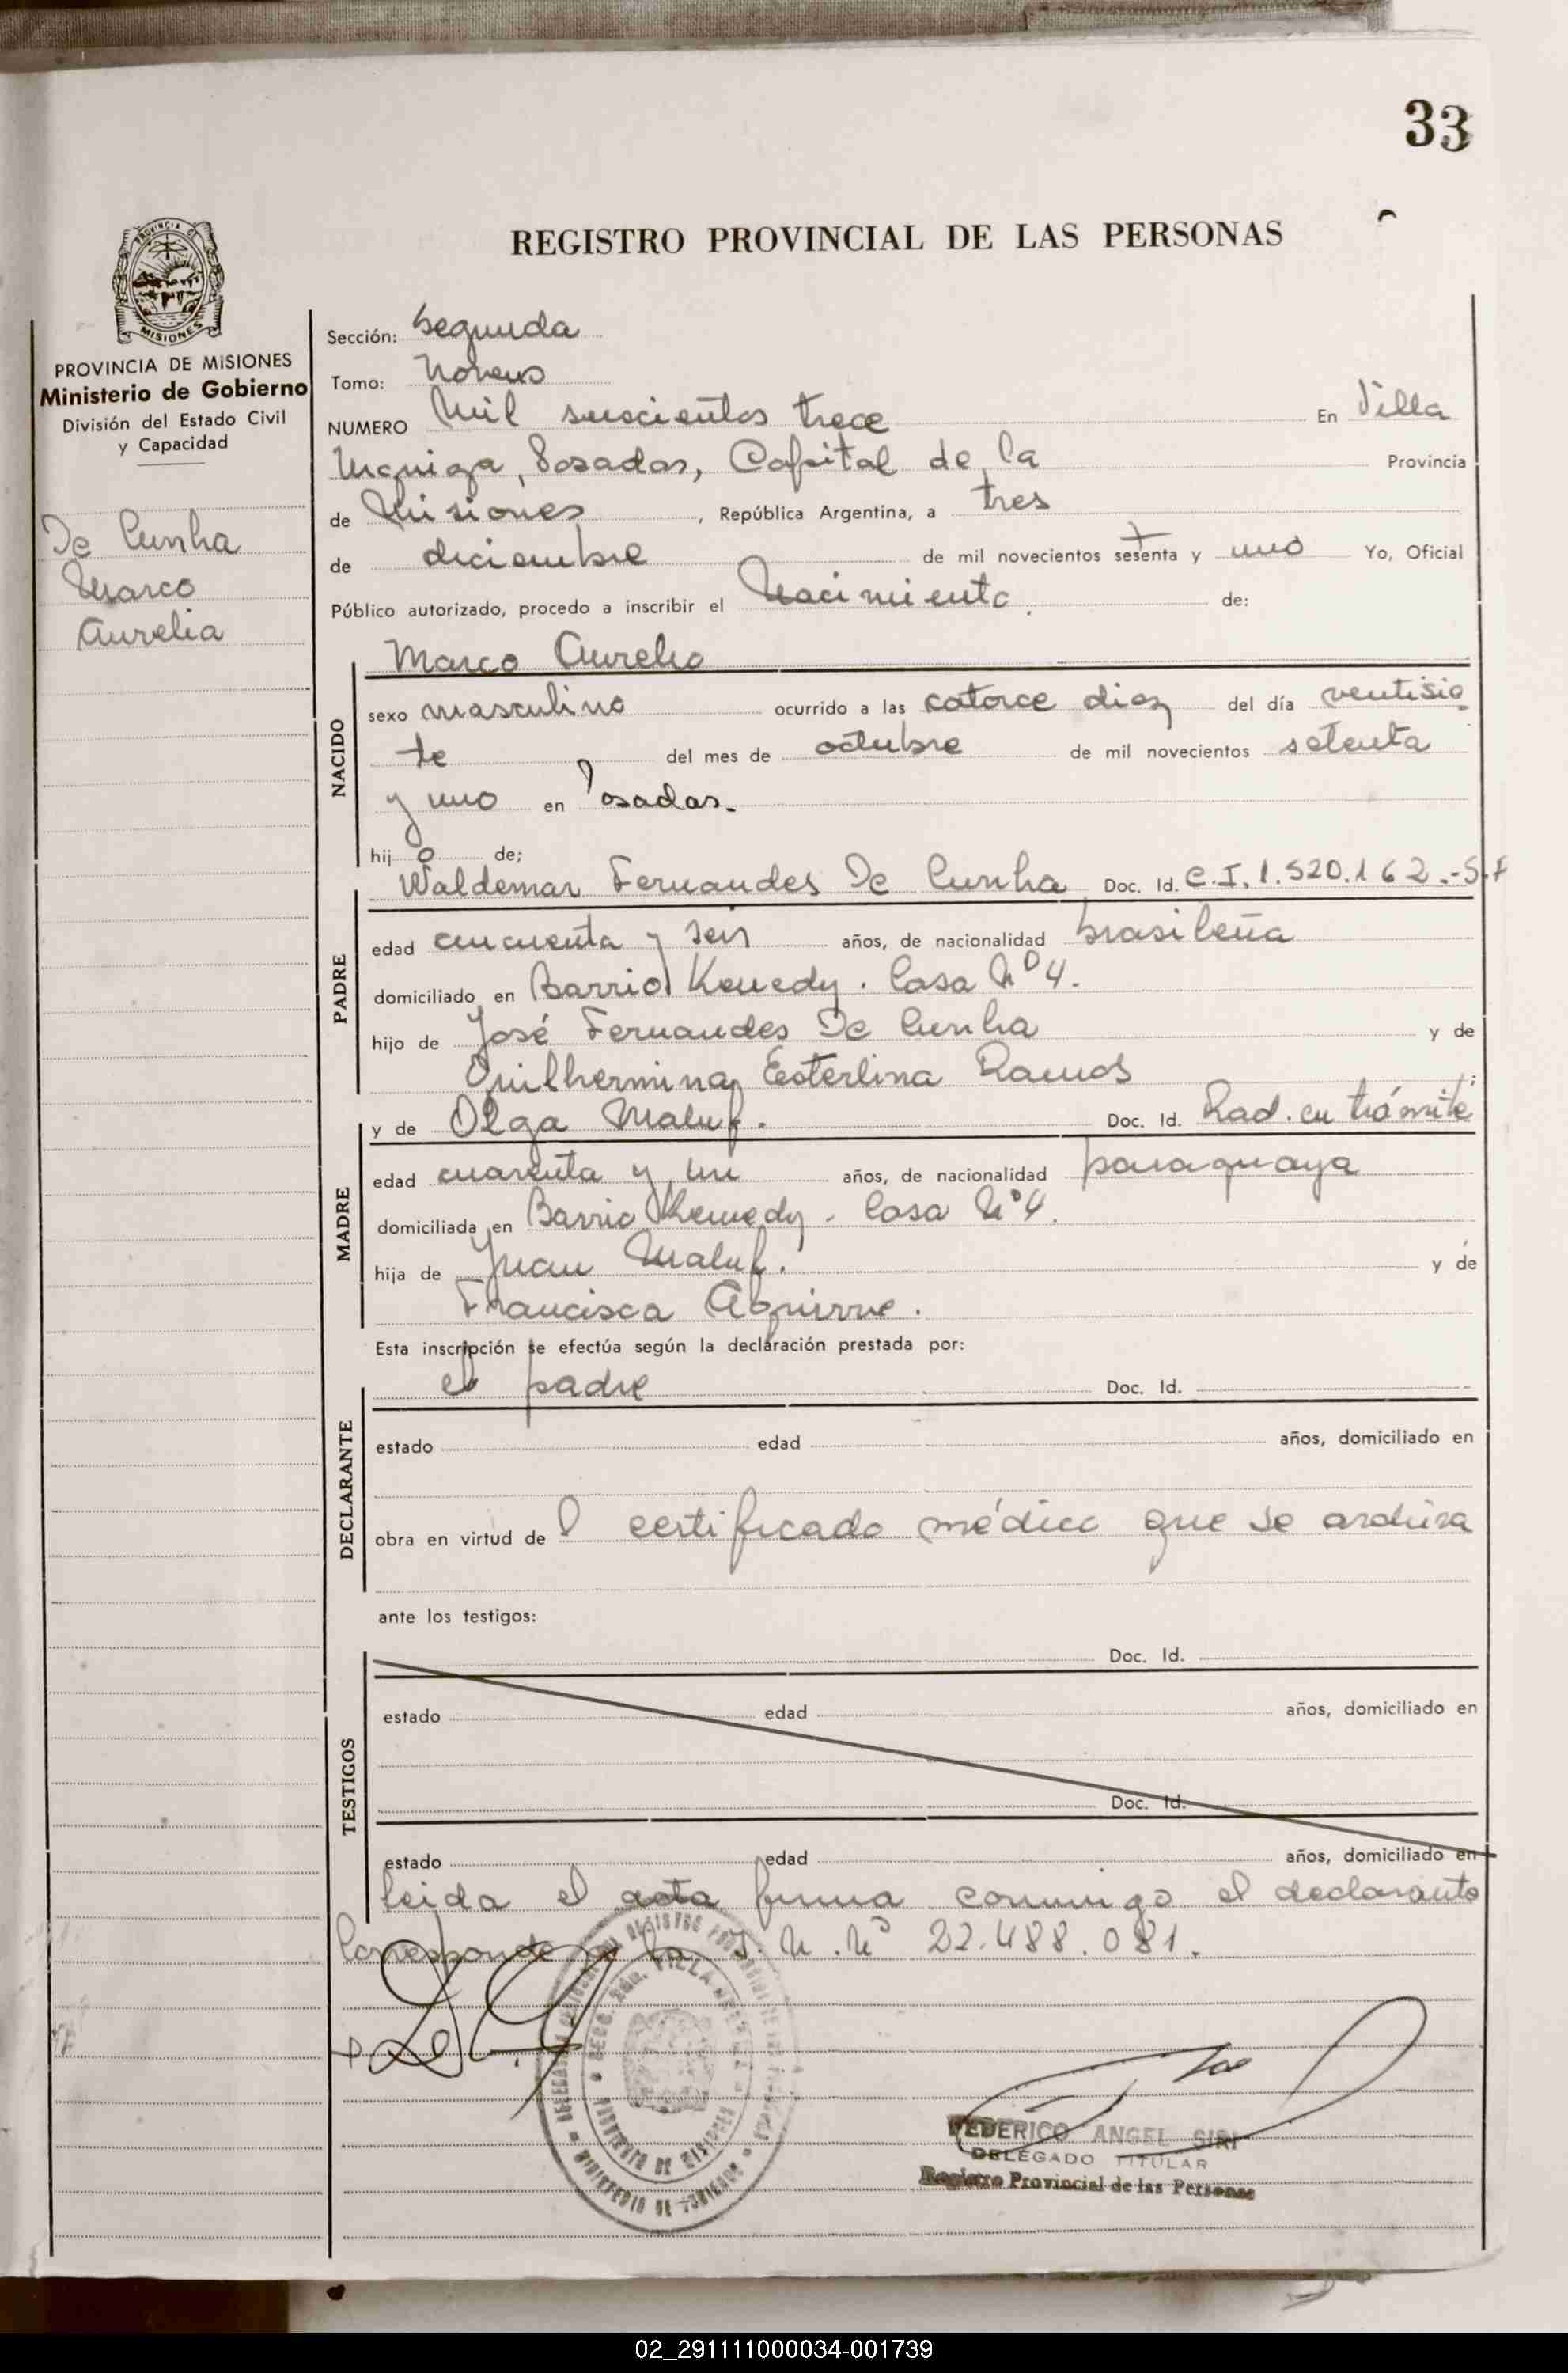 33
REGISTRO PROVINCIAL DE LAS PERSONAS
PROVINCIA DE
MISIONES
PROVINCIA DE MISIONES
Ministerio de Gobierno
División del Estado Civil
y Capacidad
De Cunha
Marco
Aurelia
Sección: Segunda
Tomo: Noveno
NUMERO Mil seiscientos trece En Villa
Urquiza, Posadas, Capital de la Provincia
de Misiones, República Argentina, a tres
de diciembre de mil novecientos sesenta y uno Yo, Oficial
Público autorizado, procedo a inscribir el Nacimiento. de:
NACIDO
Marco Aurelio
sexo masculino ocurrido a las catorce diez del día ventisie
te del mes de octubre de mil novecientos setenta
y uno en Posadas.
hijo de;
PADRE
Waldemar Fernandes De Cunha Doc. Id. C.I. 1.520.162.-S.F
edad cincuenta y seis años, de nacionalidad brasileña
domiciliado en Barrio Kenedy. Casa Nº 4.
hijo de José Fernandes De Cunha y de
Guilhermina Eesterlina Ramos
y de Olga Maluf. Doc. Id. Rad. en trámite
MADRE
edad cuarenta y un años, de nacionalidad paraguaya
domiciliada en Barrio Kennedy - Casa Nº 4.
hija de Juan Maluf. y de
Francisca Aguirre.
Esta inscripción se efectúa según la declaración prestada por:
DECLARANTE
el padre Doc. Id.
estado edad años, domiciliado en
obra en virtud de l certificado médico que se archiva
ante los testigos:
TESTIGOS
Doc. Id.
estado edad años, domiciliado en
Doc. Id.
estado edad años, domiciliado en
leida el acta firma conmigo el declarante
Corresponde a la T. N. Nº 22.488.081.
FEDERICO ANGEL SIRI
DELEGADO TITULAR
Registro Provincial de las Personas
02_291111000034-001739